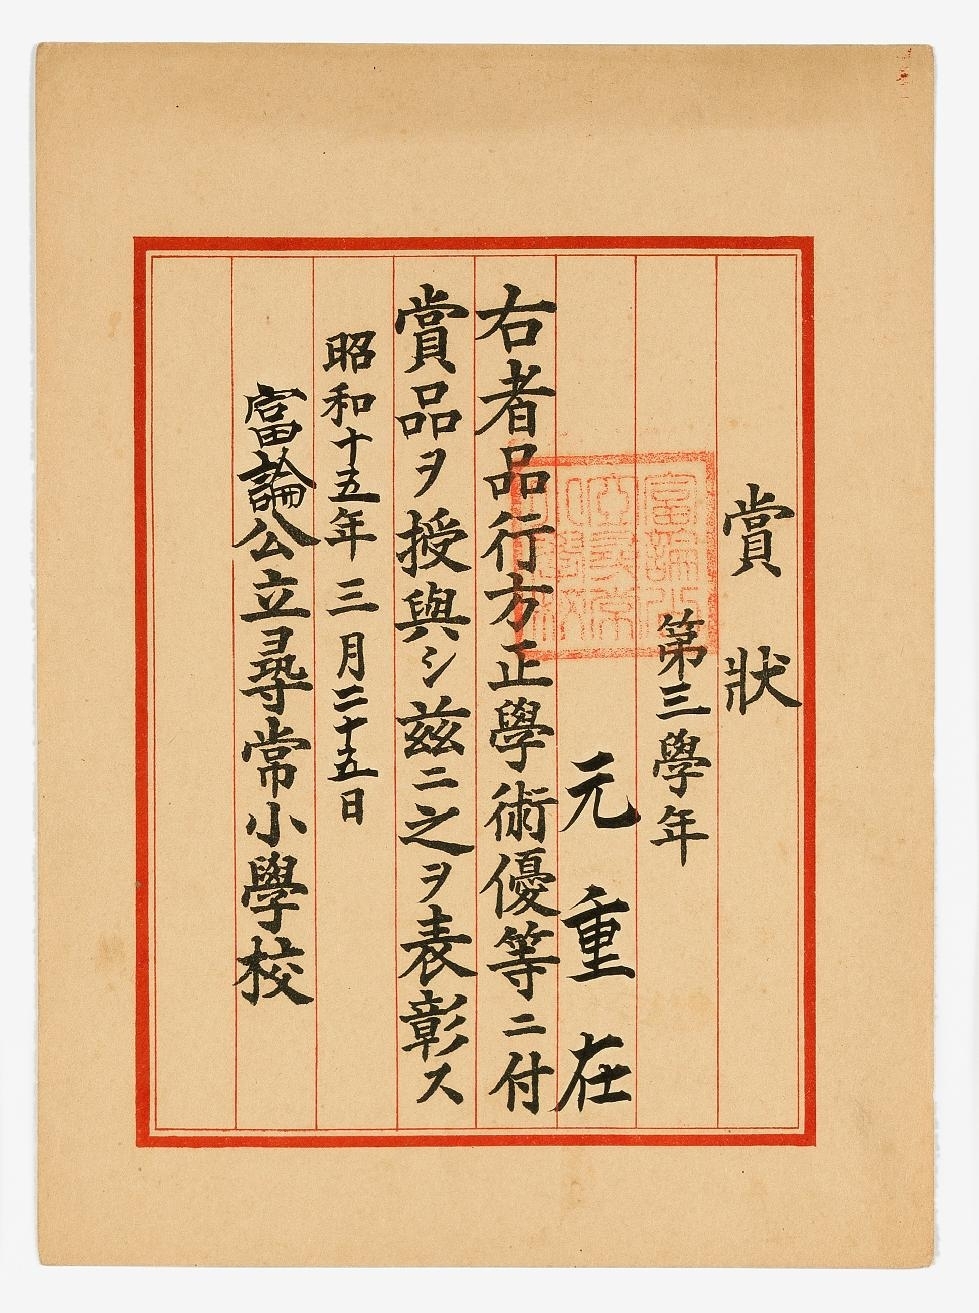 賞狀
第三學年
元重在
右者品行方正學術優等ニ付
賞品ヲ授與シ茲ニ之ヲ表彰ス
昭和十五年三月二十五日
富論公立尋常小學校